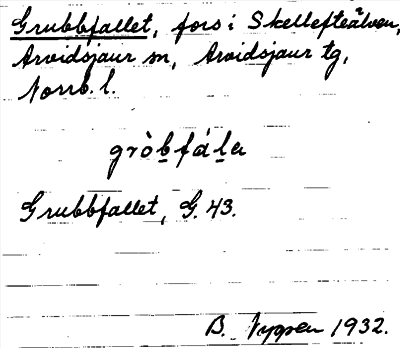 Grubbfallet, fors i Skellefteälven,
Arvidsjaur sn, Arvidsjaur tg,
Norrb. l.
gròbfála
Grubbfallet, G. 43.
B. Nygren 1932.